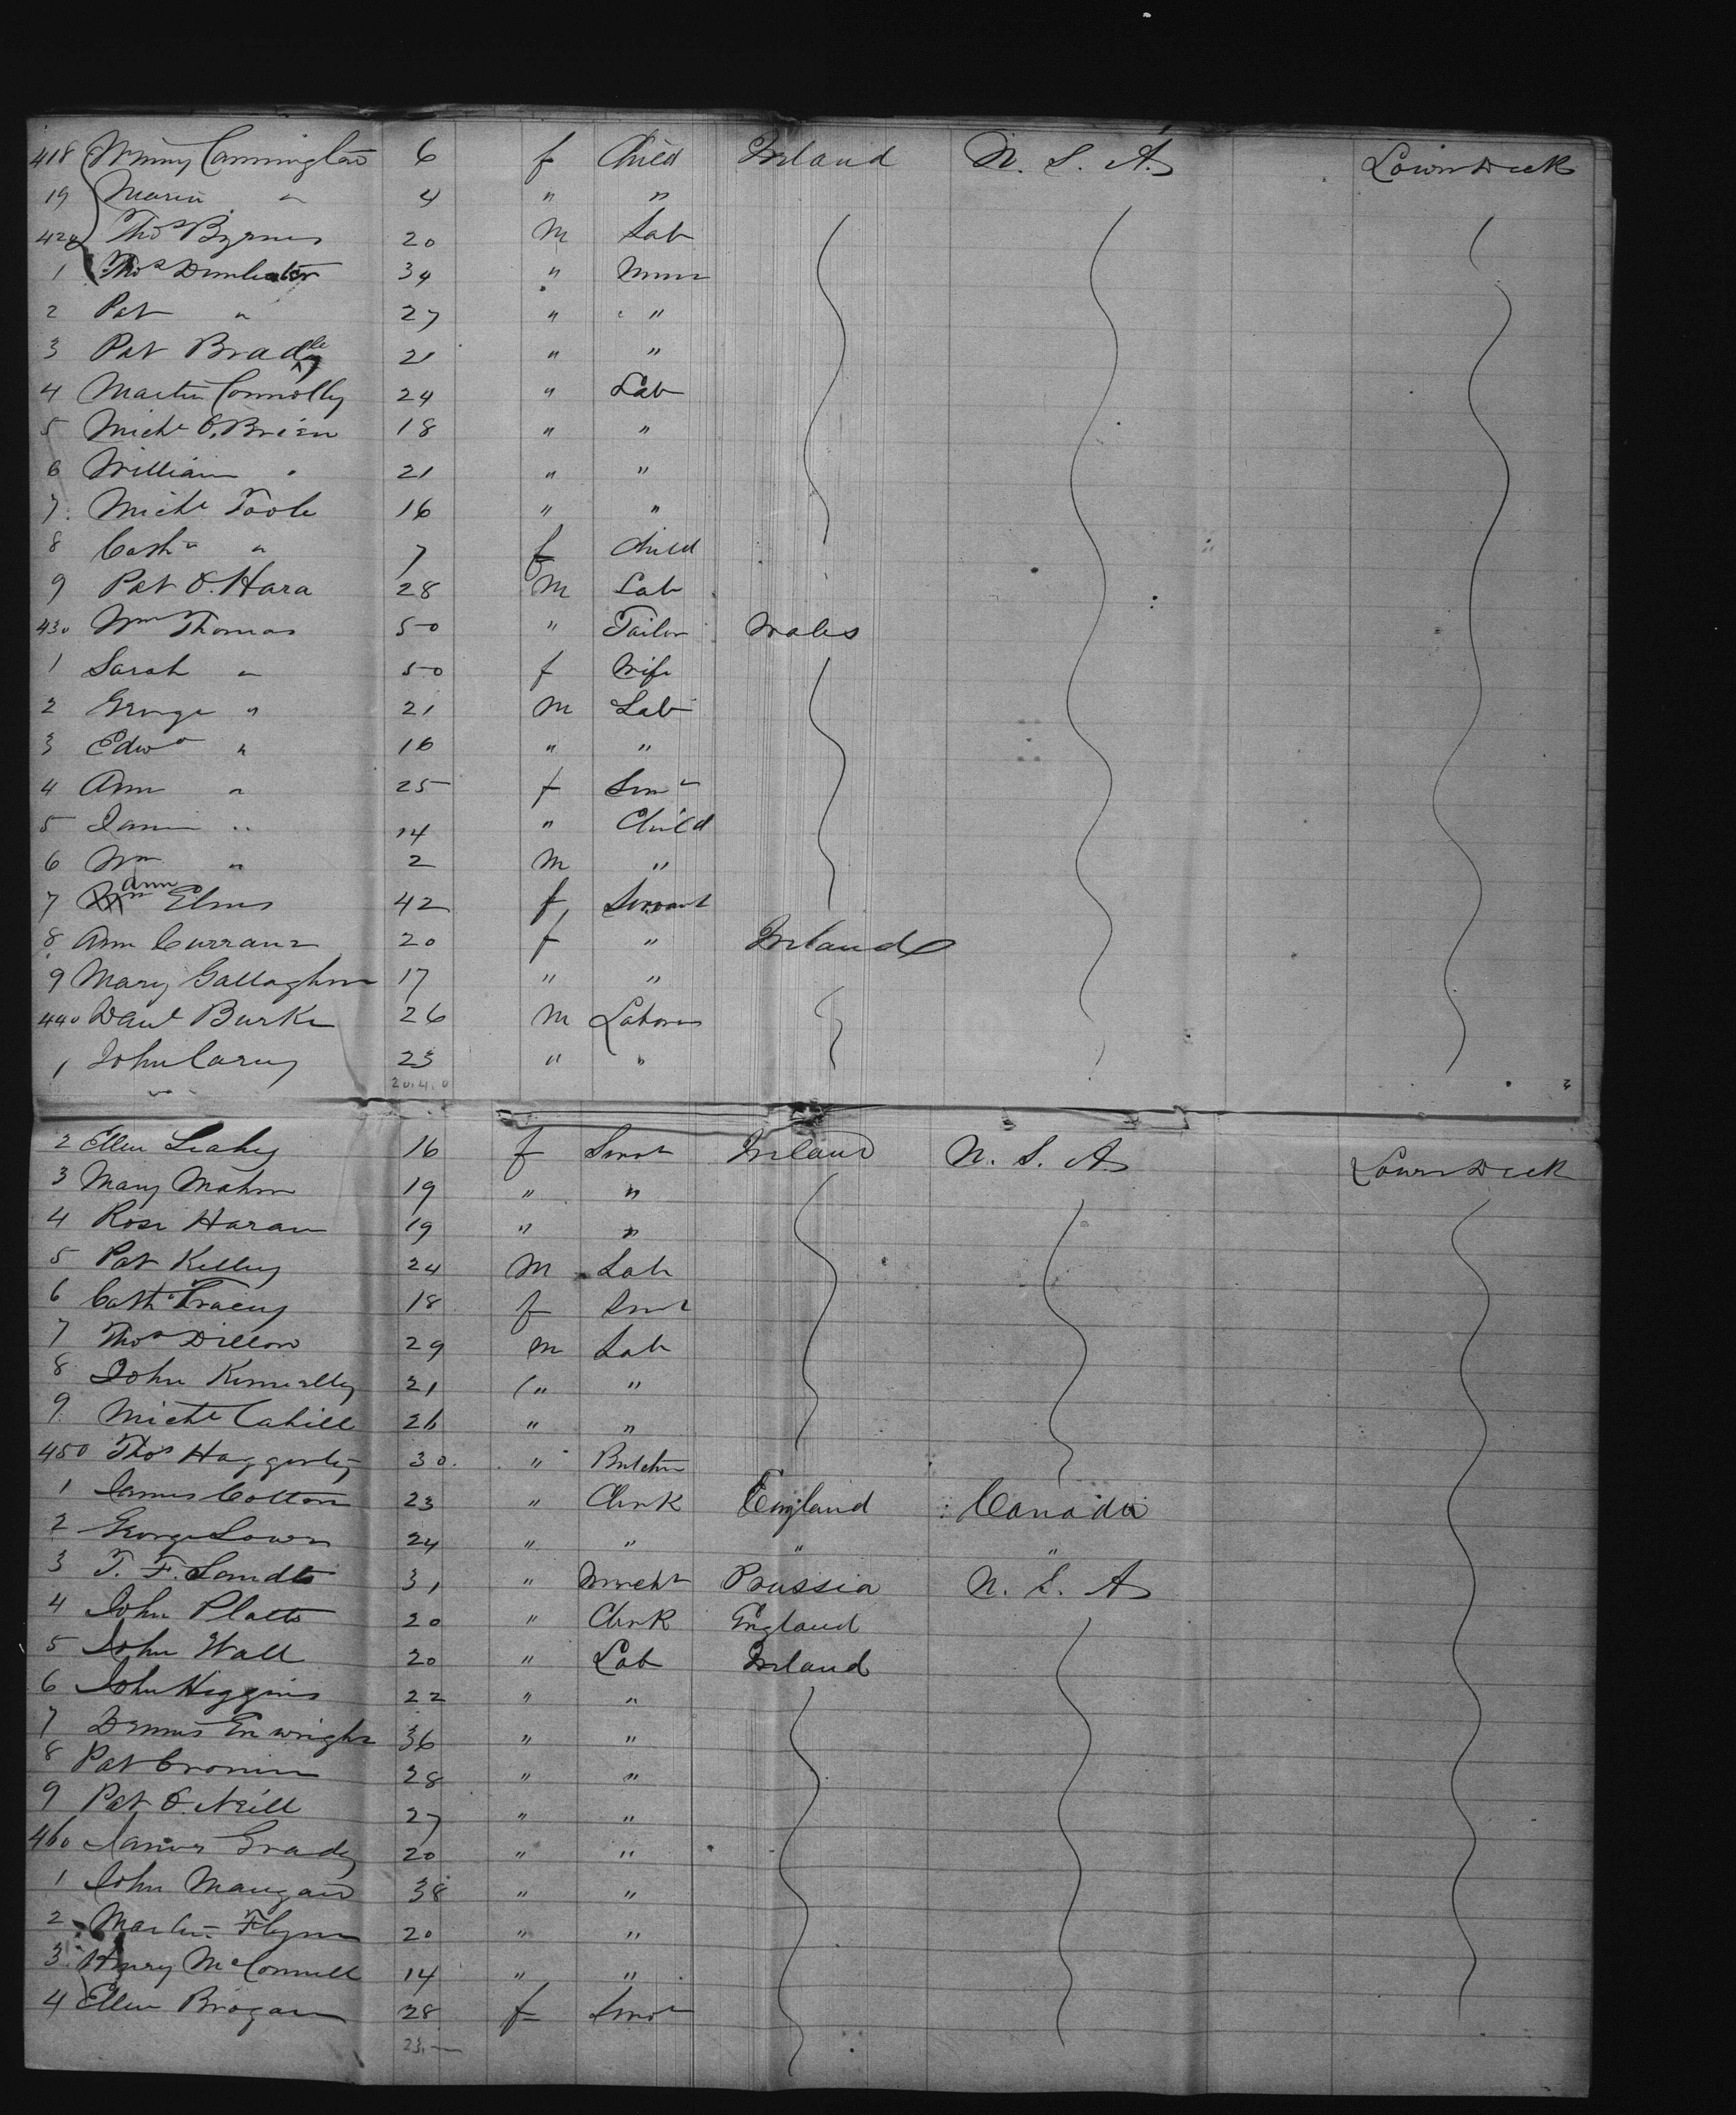 418 Winny Cannington 6 f Child Ireland U. S. A. Lower Deck
19 Maria " 4 " "
420 Thos Byrnes 20 M Lab
1 Thos 34 " Miner
2 Pat " 27 " "
3 Pat Bradly 21 " "
4 Martin Connolly 24 " Lab
5 Michl O'Brien 18 " "
6 William " 21 " "
7 Michl Toole 16 " "
8 Cathn " 7 f Child
9 Pat O'Hara 28 M Lab
430 Wm Thomas 50 " Tailor Wales
1 Sarah " 50 f Wife
2 George " 21 M Lab
3 Edwd " 16 " "
4 Ann " 25 f Servt
5 " 14 " Child
6 Wm " 2 M "
7 Ann Elms 42 f Servant
8 Ann Currans 20 f " Ireland
9 Mary Gallagher 17 " "
440 Danl Burke 26 M Laborer
1 John Carey 23 " "
20.4.0
2 Ellen Leahy 16 f Servt Ireland U. S. A Lower Deck
3 Mary Mahon 19 " "
4 Rose Haran 19 " "
5 Pat Kelley 24 M Lab
6 Cath Tracey 18 f Servt
7 Thos Dillon 29 M Lab
8 John Kennelly 21 " "
9 Michl Cahill 26 " "
450 Thos Haggerty 30 " Butcher
1 James Colton 23 " Clerk England Canada
2 George Lower 24 " " " "
3 T. F. Landt 31 " Mercht Prussia U. S. A
4 John Platts 20 " Clerk England
5 John Wall 20 " Lab Ireland
6 John Higgins 22 " "
7 Dennis Enwright 36 " "
8 Pat Cronin 28 " "
9 Pat O'Neill 27 " "
460 James Grady 20 " "
1 John Mangan 38 " "
2 Martin Flynn 20 " "
3 Henry McConnell 14 " "
4 Ellen Brogan 28 f Servt
23.—